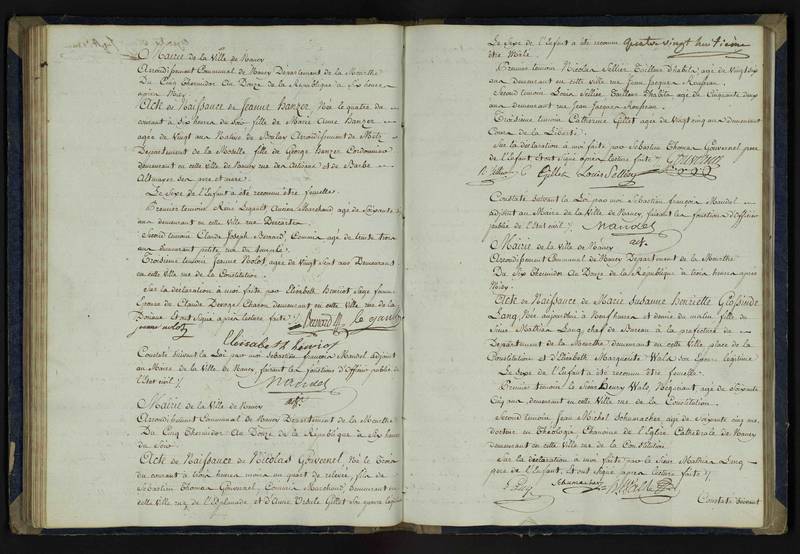 Mairie de la Ville de Nancy
Arrondissement Communal de Nancy Département de la Meurthe
Du Cinq Thermidor An Douze de la République à six heures
après Midy
Acte de Naissance de Jeanne Hanzer Née le quatre du
courant à Six heures du Soir fille de Marie Anne Hanzer
agée de Vingt ans Native de Boulay Arrondissement de Metz
Département de la Moselle fille de George Hanzer Cordonnier
demeurant en cette Ville de Nancy rue des Artisans et de Barbe
Altmayer ses pere et mere.
Le Sexe de l'Enfant a été reconnu être femelle.
Premier temoin René Ancien Marchand agé de Soixante
ans demeurant en cette Ville rue Descartes
Second temoin Claude Joseph Bernard, Commis agé de trente trois
ans demeurant petite rue du
Troisieme temoin Jeanne Nolot agée de Vingt Sept ans Demeurant
en cette Ville rue de la Constitution.
Sur la déclaration à moi faite par Elisabeth henriot Sage femme
Epouse de Claude demeurant en cette Ville rue de la
et ont Signé après lecture faite ./.
Bernard
Elisabeth henriot
Constaté Suivant la Loi par moi Sebastien françois Mandel adjoint
au Maire de la Ville de Nancy, faisant les fonctions d'Officier public de
l'Etat civil ./.
Mandel
adjt.
Mairie de la Ville de Nancy
Arrondissement Communal de Nancy Département de la Meurthe
Du Cinq Thermidor An Douze de la République à Six heures
du Soir
Acte de Naissance de Nicolas Gouvernel Né le Trois
du courant à trois heures moins un quart de relevée, fils de
Sébastien Thomas Gouvernel, Commis Marchand, demeurant en
cette Ville rue de l'Esplanade et d'Anne Ursule Gillet Son epouse légitime
quatre vingt huitieme
Le Sexe de l'Enfant a été reconnu
être Mâle
Premier temoin Nicolas Sellier Tailleur d'habits agé de Vingt six
ans demeurant en cette ville rue Jean Jacques Rousseau.
Second temoin Louis Sellier Tailleur d'habits agé de Cinquante deux
ans demeurant rue Jean Jacques Rousseau.
Troisieme temoin Catherine Gillet agée de Vingt cinq ans demeurant
Cours de la Liberté.
Sur la déclaration à moi faite par Sebastien Thomas Gouvernel pere
de l'Enfant et ont Signé après lecture faite ./. Gouvernel
N. Sellier C Gillet Louis Sellier
Constaté Suivant la Loi par moi Sebastien françois Mandel
adjoint au Maire de la Ville de Nancy, faisant les fonctions d'Officier
public de l'Etat civil ./.
Mandel
adjt.
Mairie de la Ville de Nancy
Arrondissement Communal de Nancy Département de la Meurthe
Du Six Thermidor An Douze de la République à trois heures après
Midy.
Acte de Naissance de Marie Susanne Henriette Glossinde
Lang, Née aujourd'hui à Neuf heures et demie du matin fille de
Sieur Mathias Lang, chef de Bureau à la préfecture du
Département de la Meurthe demeurant en cette Ville place de la
Constitution et d'Elisabeth Marguerite Wals son Epouse légitime
Le Sexe de l'Enfant a été reconnu être femelle.
Premier temoin le Sieur Henry Wals, Négociant, agé de Soixante
Cinq ans, demeurant en cette Ville rue de la Constitution.
Second temoin Jean Michel Schumacher agé de Soixante cinq ans,
docteur en Théologie Chanoine de l'Eglise Cathédrale de Nancy
demeurant en cette Ville rue de la Constitution
Sur la déclaration à moi faite par le Sieur Mathias Lang
pere de l'Enfant, et ont Signé après lecture faite ./.
Lang Schumacher
Constaté Suivant